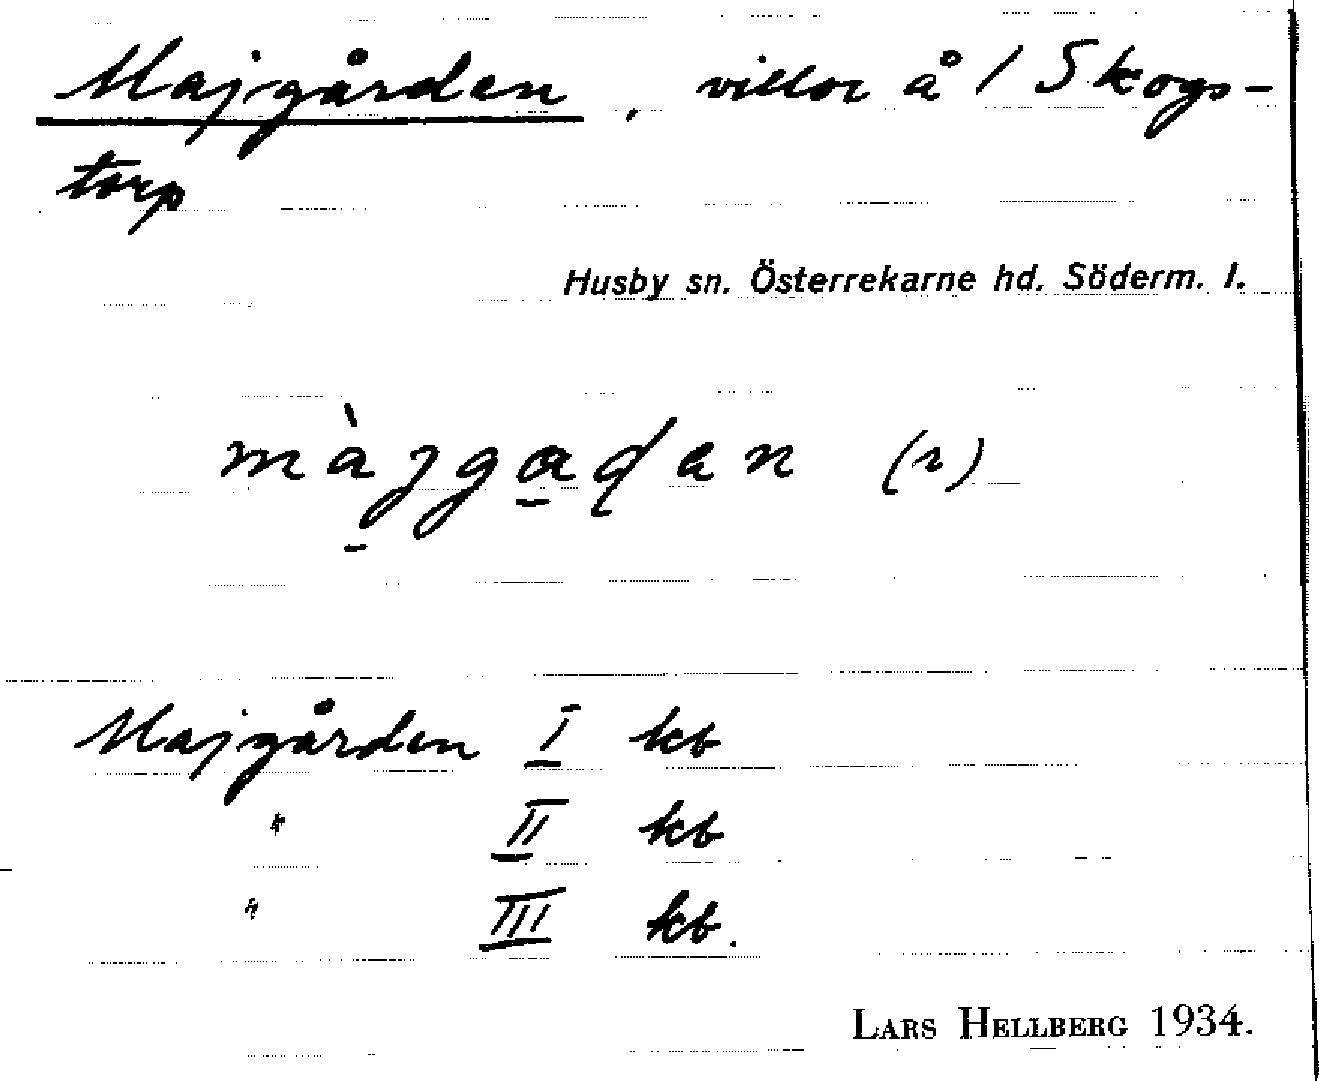 Majgården, villor å 1 Skogs-
torp
Husby sn. Österrekarne hd. Söderm. l.
màjgaɖan (r)
Majgården I kb
" II kb
" III kb.
LARS HELLBERG 1934.